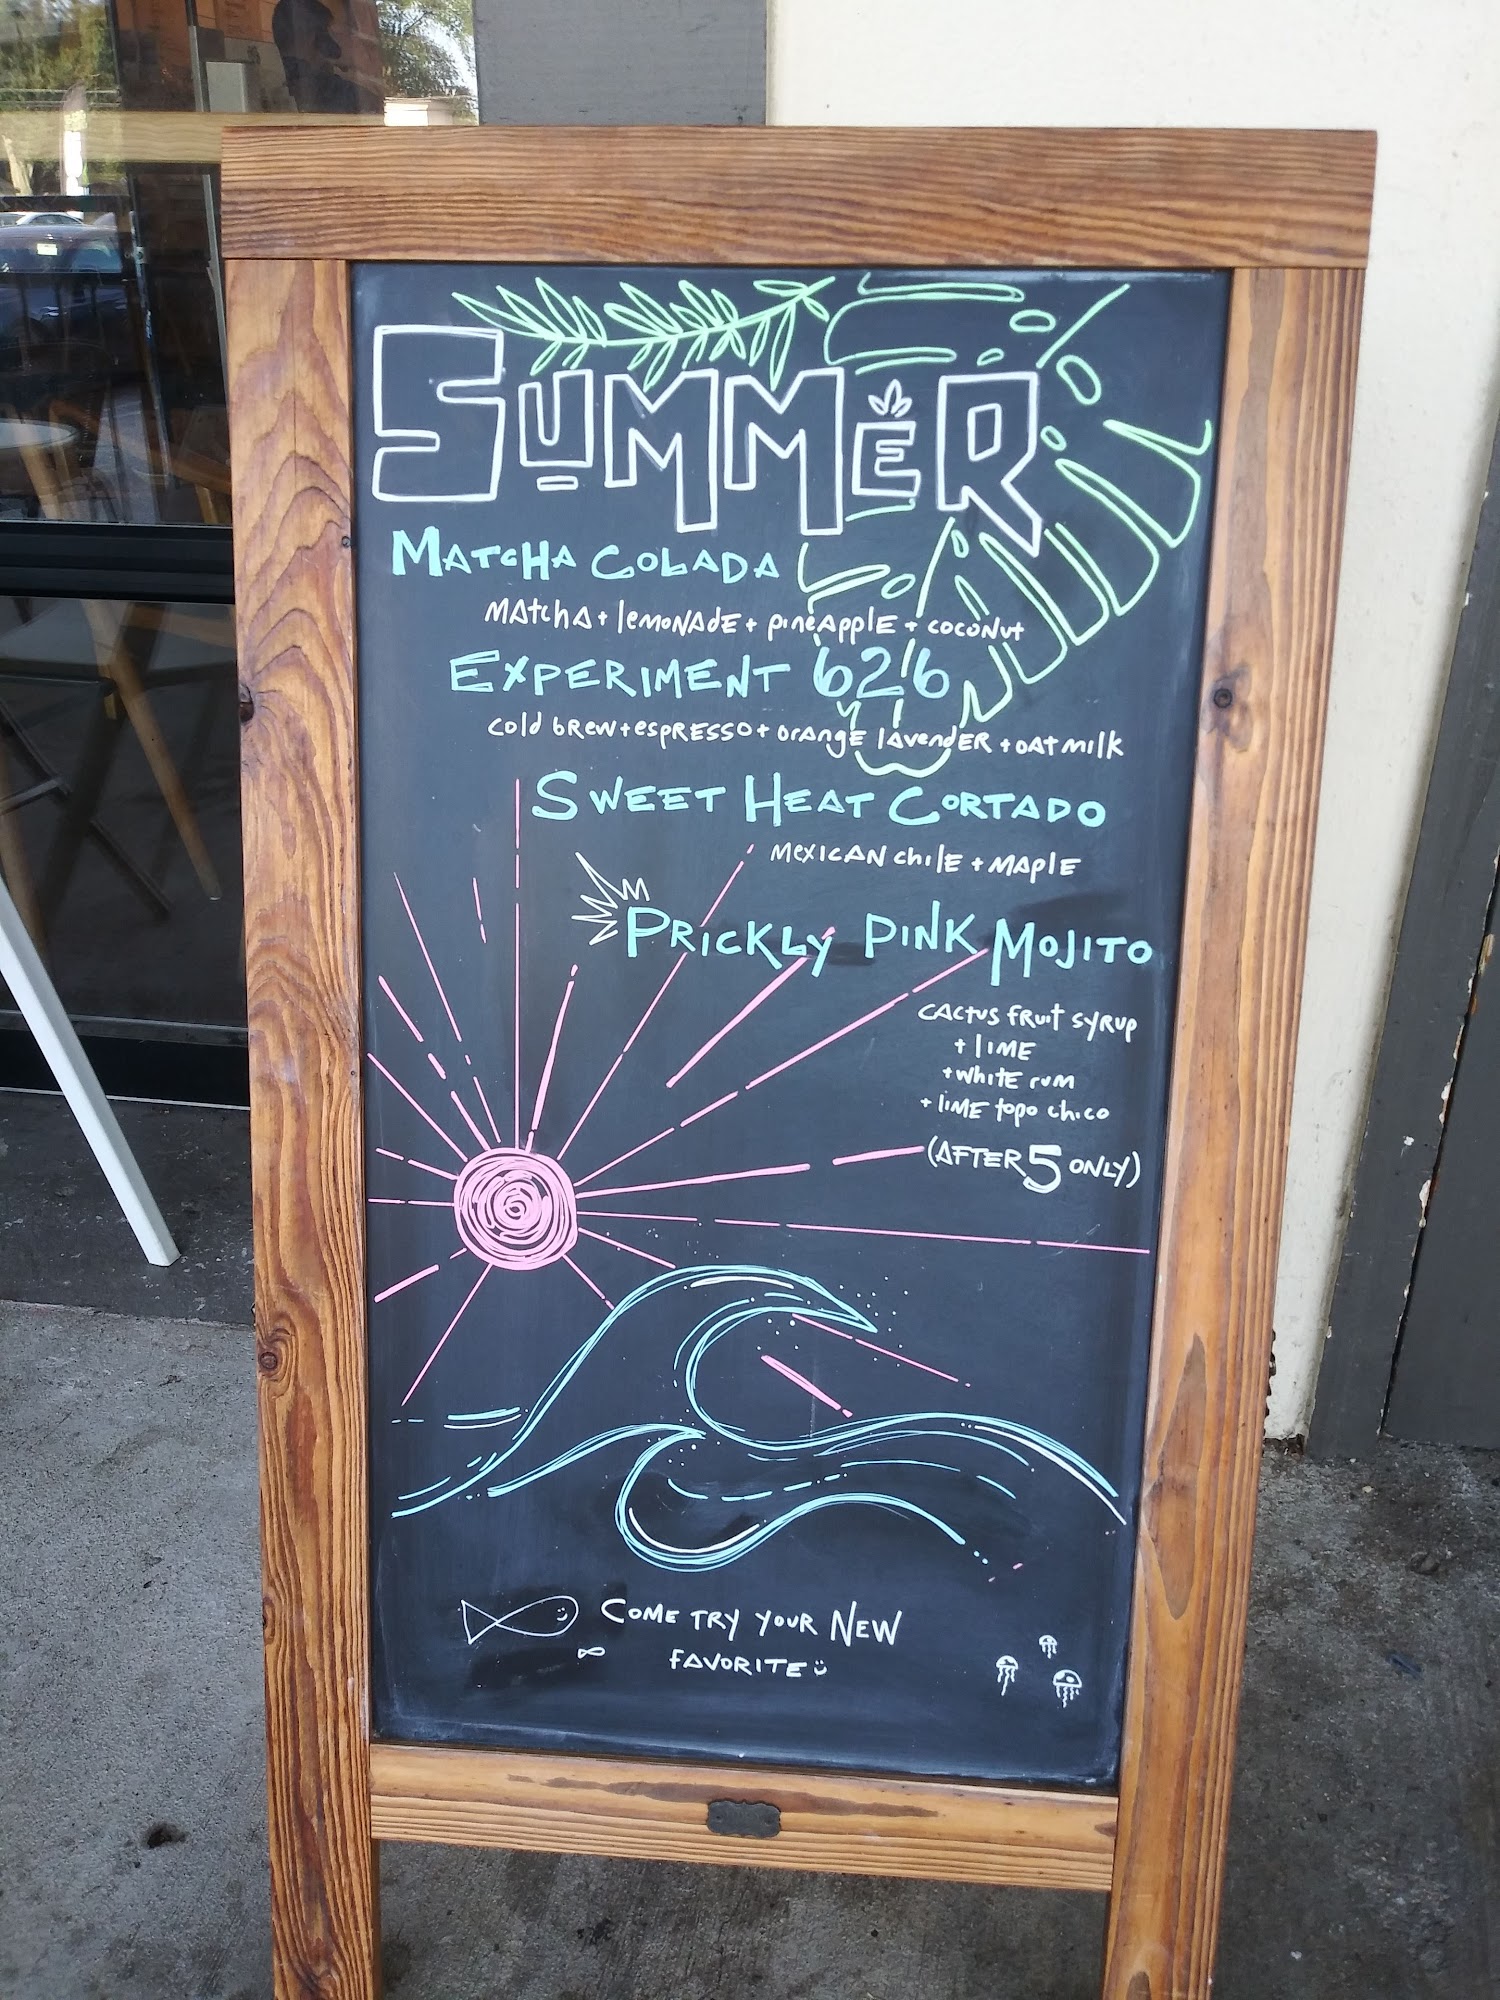 SUMMER
MATCHA COLADA
MATCHA + LEMONADE + PINEAPPLE + COCONUT
EXPERIMENT 626
COLD BREW + ESPRESSO + ORANGE LAVENDER + OAT MILK
SWEET HEAT CORTADO
MEXICAN CHILE + MAPLE
PRICKLY PINK MOJITO
CACTUS FRUIT SYRUP
+ LIME
+ WHITE RUM
+ LIME TOPO CHICO
(AFTER 5 ONLY)
COME TRY YOUR NEW
FAVORITE